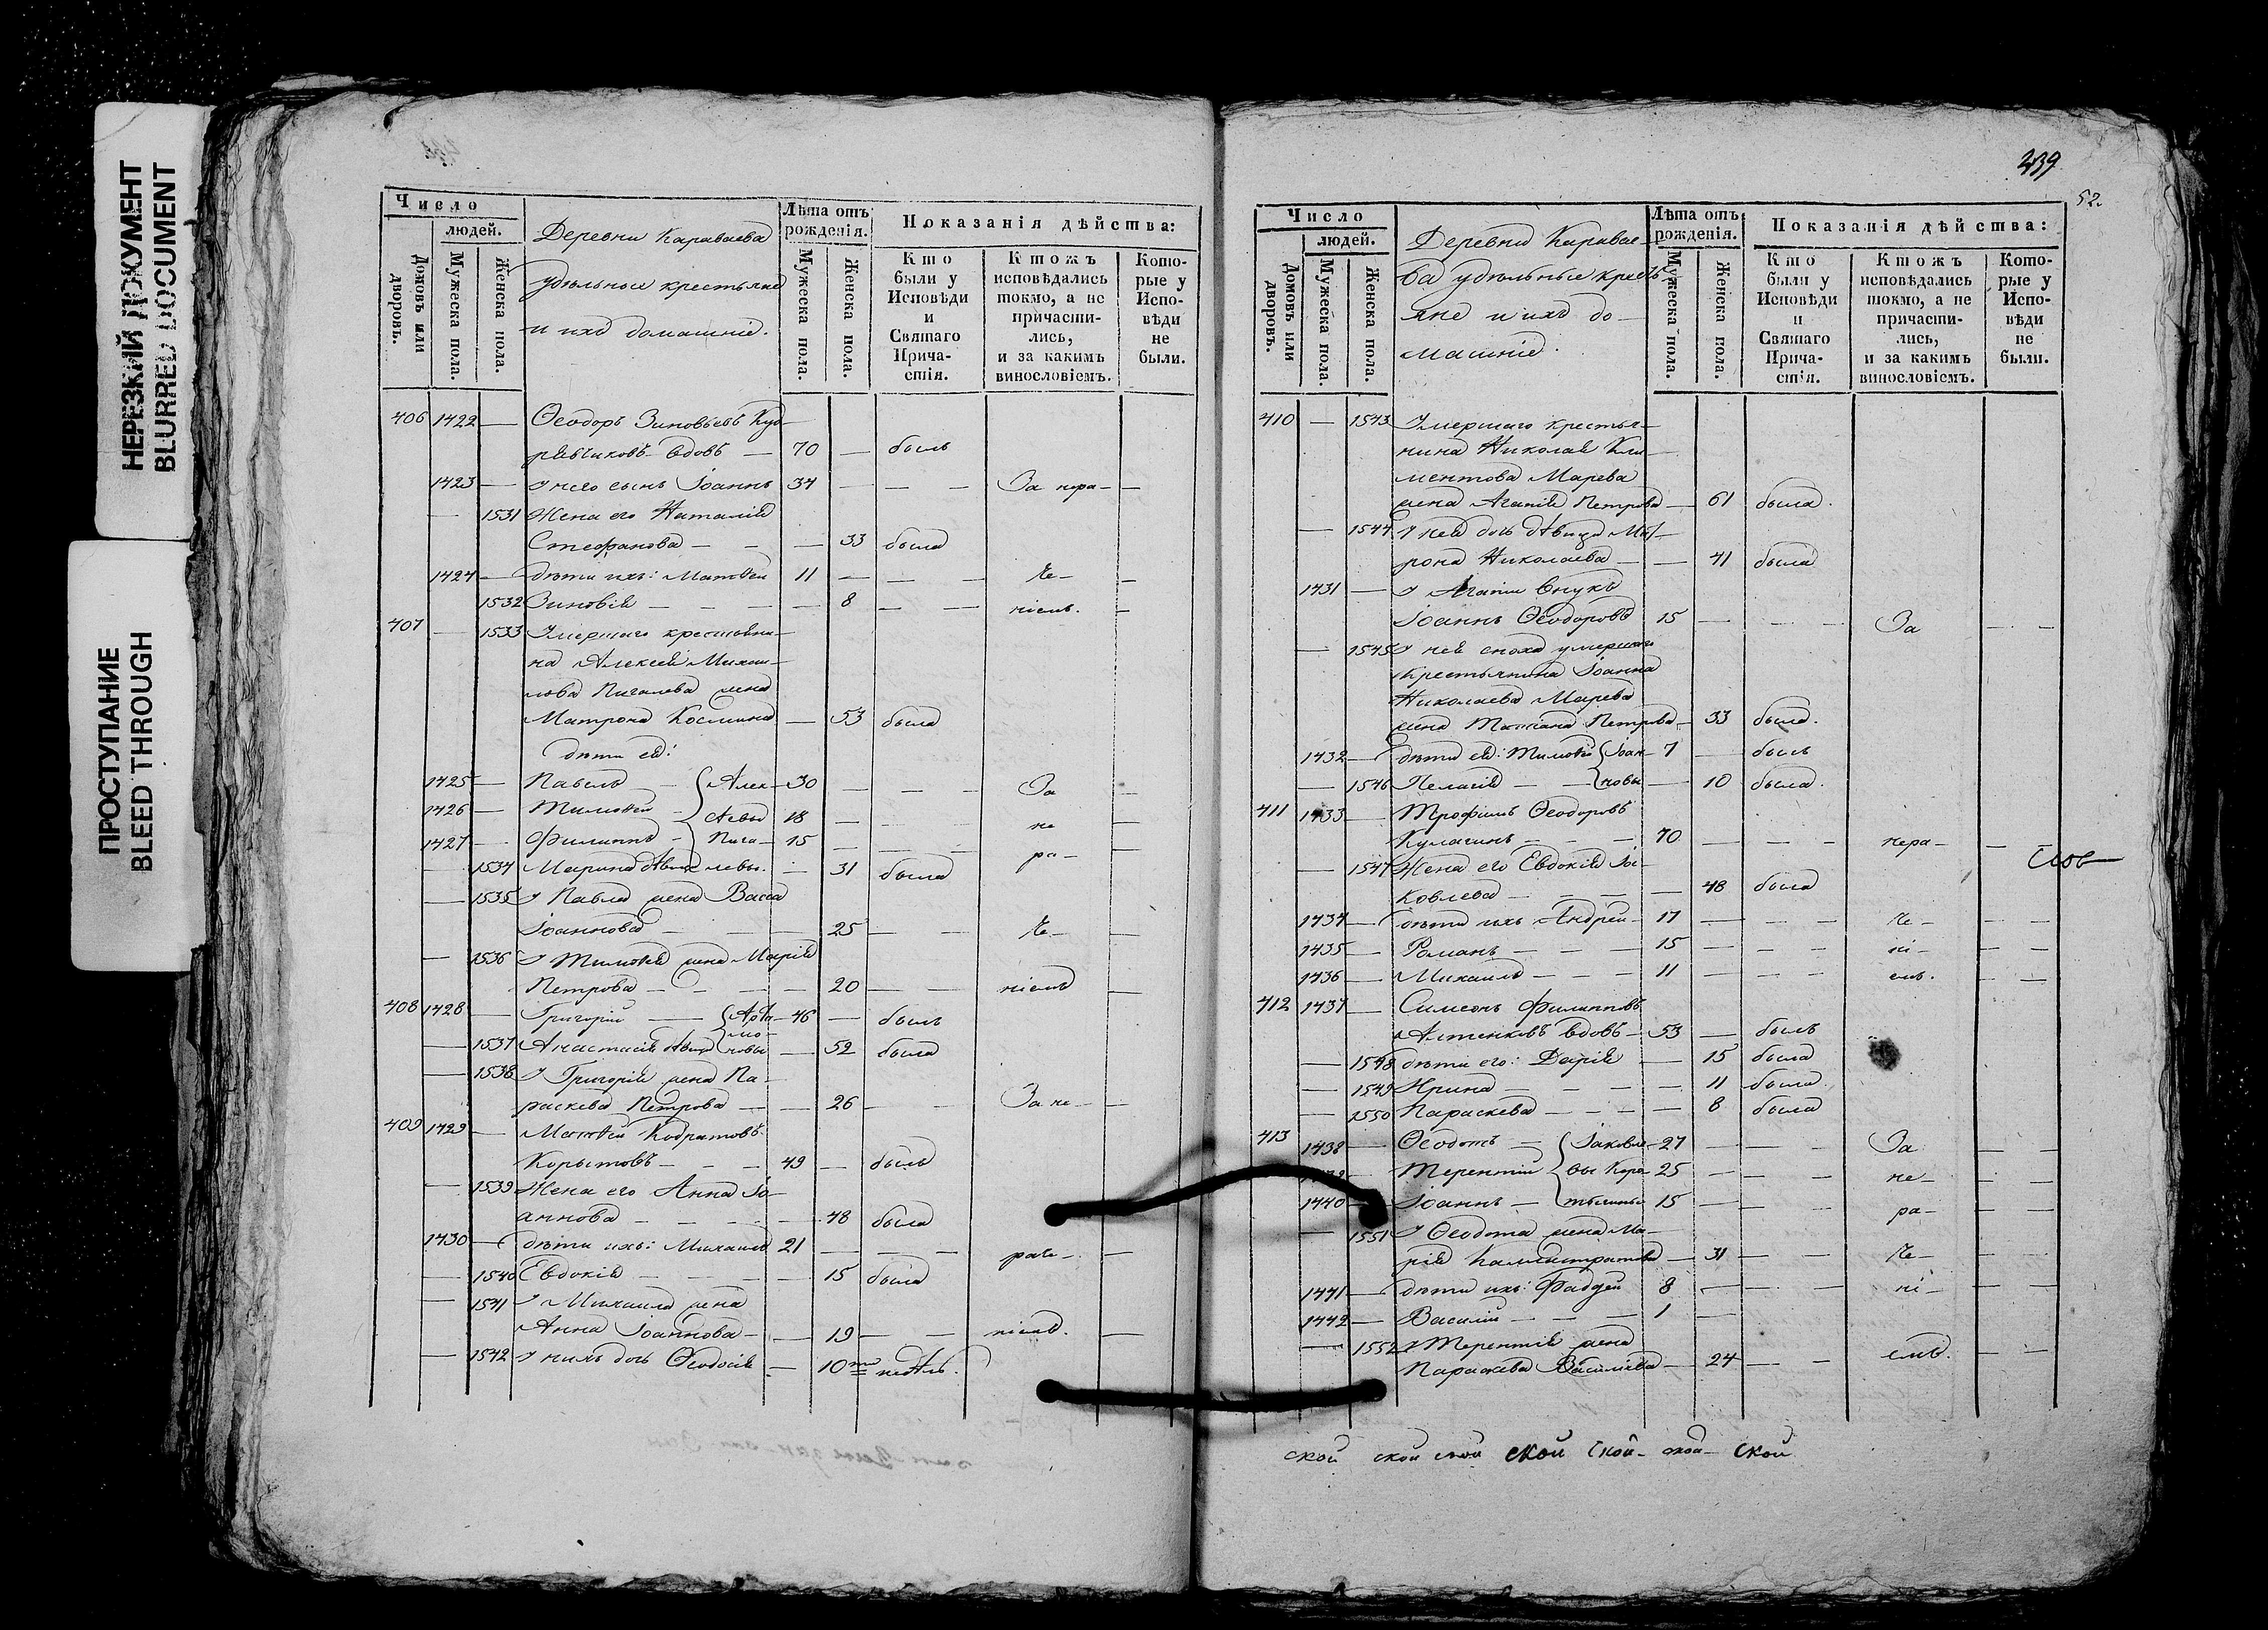 НЕРЕЗКИЙ ДОКУМЕНТ
BLURRED DOCUMENT
ПРОСТУПАНИЕ
BLEED THROUGH
Число
людей.
Домовъ или дворовъ.
Мужеска пола.
Женска пола.
Деревни Караваева
удѣльные крестьяне
и ихъ домашніе.
Лѣта отъ рожденія.
Мужеска пола.
Женска пола.
Показанія дѣйства:
Кто были у Исповѣди и Святаго Прича-стія.
Ктожъ исповѣдались токмо, а не причасти-лись, и за какимъ винословіемъ.
Кото-рые у Испо-вѣди не были.
406 1422 — Ѳеодоръ Зиновьевъ Куд-
рявчиковъ вдовъ — 70 — былъ
1423 — У него сынъ Іоаннъ 34 — — — За нера- —
— 1531 Жена его Наталія
Стефанова — — — 33 была
1424 — дѣти ихъ: Матѳей 11 — — — че- —
1532 Зиновія — — — — 8 — — ніемъ. —
407 — 1533 Умершаго крестьяни-
на Алексія Михаи-
лова Пигалева жена
Матрона Космина — 53 была
дѣти ея:
1425 — Павелъ — Алек- 30 — — — За —
1426 — Тимоѳей — сѣевы 18 — — — не —
1427 — Филиппъ — Пига- 15 — — — ра- —
— 1534 Марина дѣвица левы. — 31 была
— 1535 У Павла жена Васса
Іоаннова — — — 25 — — че- —
— 1536 У Тимоѳея жена Марія
Петрова — — — — 20 — — ніемъ —
408 1428 — Григорій — Арта- 46 — былъ
— 1537 Анастасія дѣвица мо-новы — 52 была
— 1538 У Григорія жена Па-
раскева Петрова — — 26 — — За не- —
409 1429 — Матѳей Кодратовъ
Корытовъ — — — 49 — былъ
— 1539 Жена его Анна Іо-
аннова — — — — 48 была
1430 — дѣти ихъ: Михаилъ 21 — — — раче- —
— 1540 Евдокія — — — — 15 была
— 1541 У Михаила жена
Анна Іоаннова — — 19 — — ніемъ. —
— 1542 У нихъ дочь Ѳеодосія — 10 недѣль.
239
52.
Число
людей.
Домовъ или дворовъ.
Мужеска пола.
Женска пола.
Деревни Каравае-
ва удѣльные кресть-
яне и ихъ до-
машніе.
Лѣта отъ рожденія.
Мужеска пола.
Женска пола.
Показанія дѣйства:
Кто были у Исповѣди и Святаго Прича-стія.
Ктожъ исповѣдались токмо, а не причасти-лись, и за какимъ винословіемъ.
Кото-рые у Испо-вѣди не были.
410 — 1543 Умершаго крестья-
нина Николая Кли-
ментова Марева
жена Агапія Петрова — 61 была.
— 1544 У ней дочь дѣвица Мат-
рона Николаева — — 41 была
1431 — У Агапіи внукъ
Іоаннъ Ѳеодоровъ 15 — — — За — —
— 1545 У ней сноха умершаго
крестьянина Іоанна
Николаева Марева
жена Татіана Петрова — 33 была.
1432 — дѣти ея: Тимоѳей Іоан- 7 — былъ
— 1546 Пелагія — — новы — 10 была.
411 1433 — Трофимъ Ѳеодоровъ
Кулагинъ — — — 70 — — — нера- —
— 1547 Жена его Евдокія Іа-
ковлева — — — — 48 была
1434 — дѣти ихъ Андрей — 17 — — — че- — —
1435 — Романъ — — — 15 — — — ні- — —
1436 — Михаилъ — — — 11 — — — емъ. — —
412 1437 — Симеонъ Филипповъ
вдовъ — 53 — былъ
— 1548 дѣти его: Дарія — 15 была
— 1549 Ирина — — — — 11 была.
— 1550 Параскева — — — — 8 была
413 1438 — Ѳеодотъ — Іаковле- 27 — — — За — —
Терентій вы Коро- 25 — — — не- — —
1440 — Іоаннъ — 15 — — — ра- — —
— 1551 У Ѳеодота жена Ма-
рія Каллистратова — 31 — — че- — —
1441 — дѣти ихъ: Фаддей 8 — — — ні- — —
1442 — Василій — — — 1 —
— 1552 У Терентія жена
Параскева Василіева — 24 — — емъ. — —
ской ской ской ской ской- ской- ской